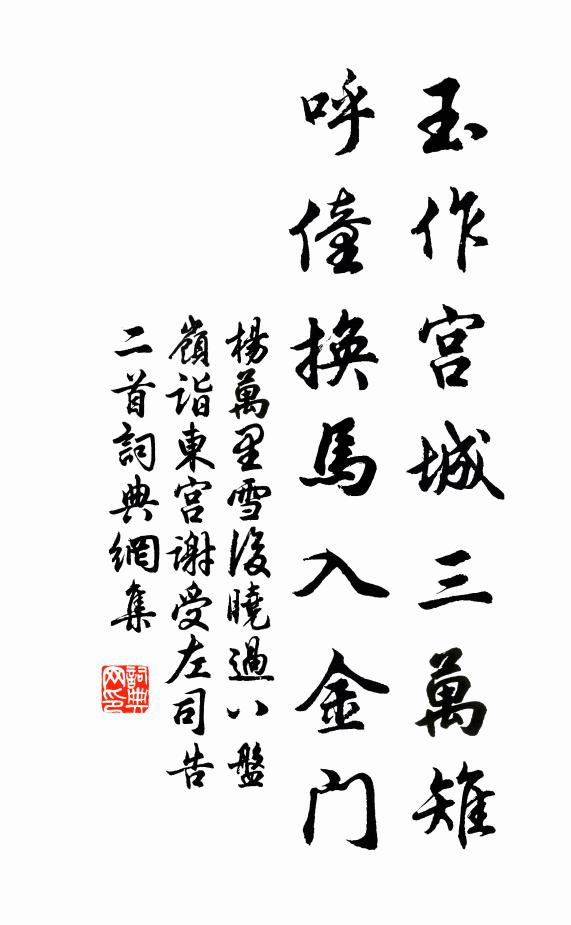 玉作宮城三萬雉
呼僮換馬入金門
楊萬里雪後曉過八盤
嶺詣東宮謝受左司告
二首詞典網集
詞典
网印